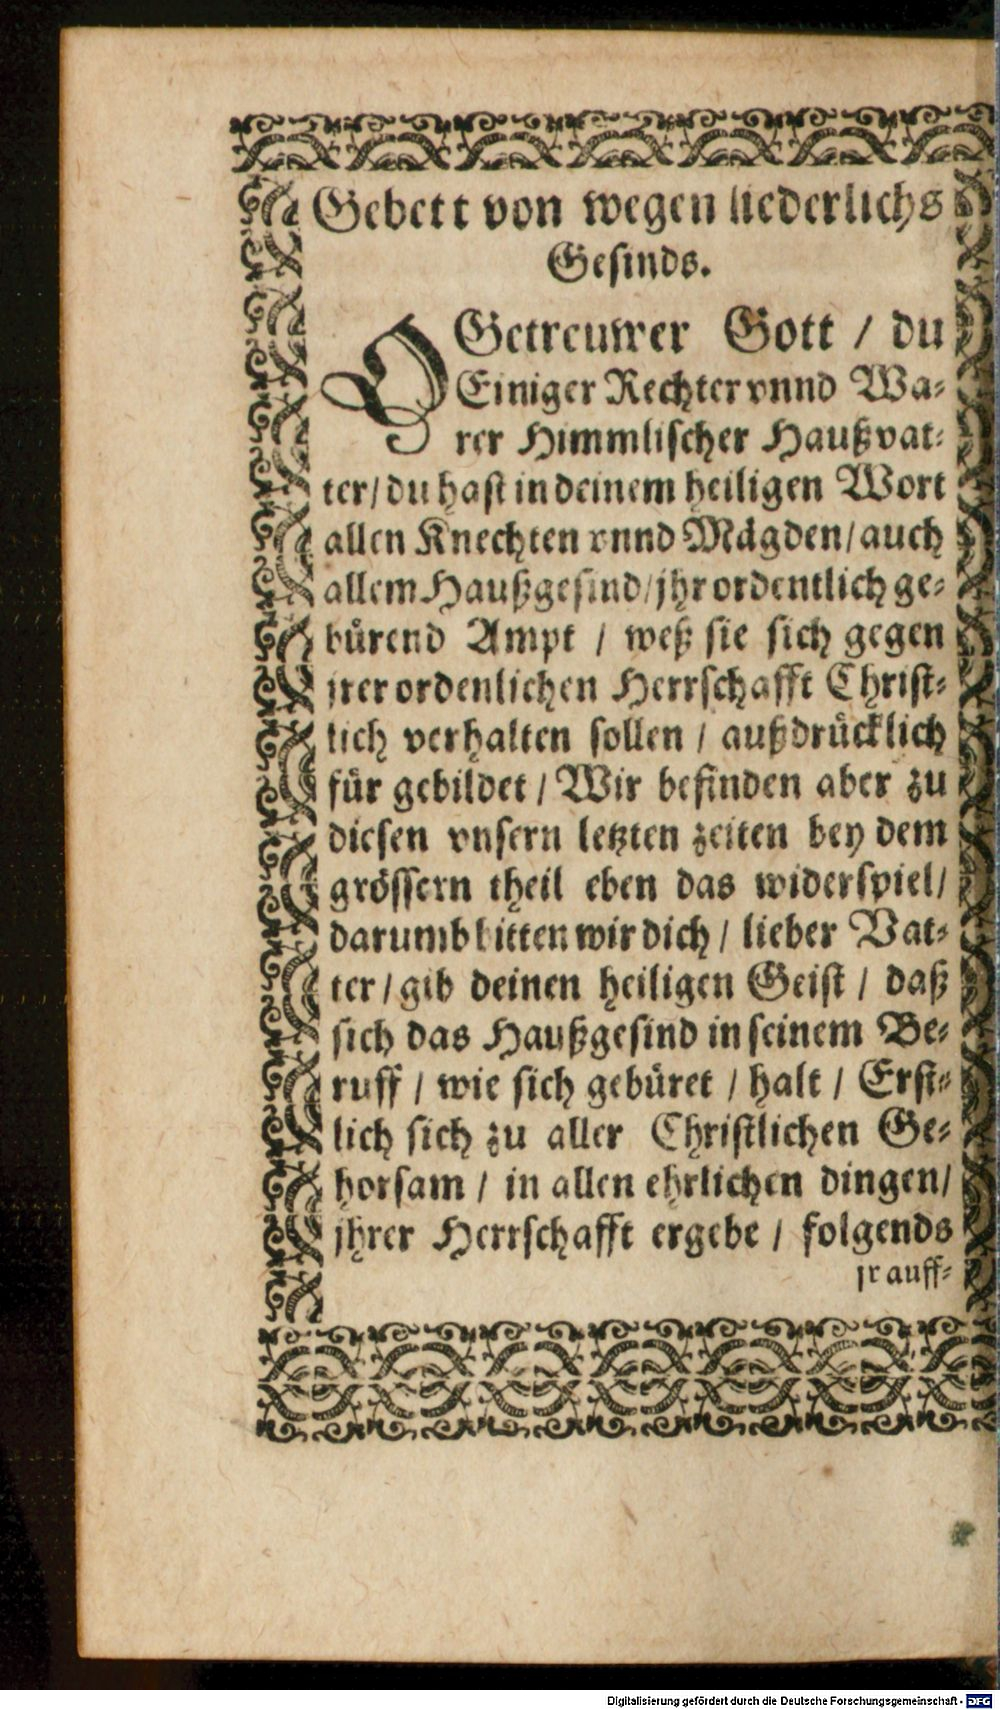 Gebett von wegen liederlichs
Gesinds.
O Getreuwer Gott / du
Einiger Rechter vnnd Wa-
rer Himmlischer Haußvat-
ter / du hast in deinem heiligen Wort
allen Knechten vnnd Mägden / auch
allem Haußgesind / jhr ordentlich ge-
bürend Ampt / weß sie sich gegen
jrer ordenlichen Herrschafft Christ-
lich verhalten sollen / außdrücklich
für gebildet / Wir befinden aber zu
diesen vnsern letzten zeiten bey dem
grössern theil eben das widerspiel /
darumb bitten wir dich / lieber Vat-
ter / gib deinen heiligen Geist / daß
sich das Haußgesind in seinem Be-
ruff / wie sich gebüret / halt / Erst-
lich sich zu aller Christlichen Ge-
horsam / in allen ehrlichen dingen /
jhrer Herrschafft ergebe / folgends
jr auff-
Digitalisierung gefördert durch die Deutsche Forschungsgemeinschaft - DFG